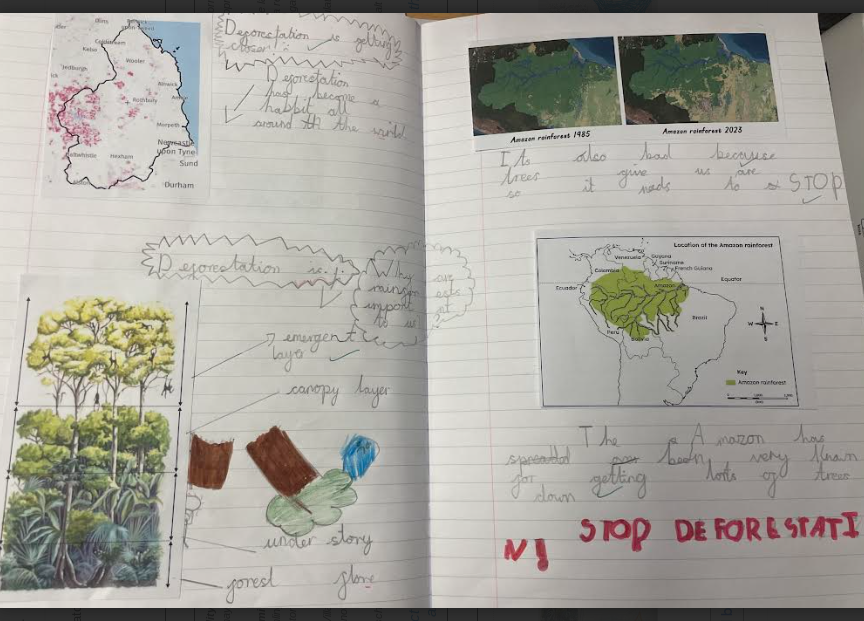 Deforestation is getting
closer
Deforestation
has become a
habbit all
around th the world
Kelso
Coldstream
Wooler
Jedburgh
Rothbury
Alnwick
Morpeth
Haltwhistle
Hexham
Newcastle
upon Tyne
Sund
Durham
Deforestation is
Why
are
rainfor
ests
import
nt
to us
emergent
layer
canopy layer
under story
forest flore
Amazon rainforest 1985
Amazon rainforest 2023
Its also bad because
trees give us are
so it needs to STOP
Location of the Amazon rainforest
Venezuela
Guyana
Suriname
French Guiana
Colombia
Ecuador
Equator
Amazon
Peru
Brazil
Bolivia
N
W
E
S
Key
Amazon rainforest
The Amazon has
been very
for getting lots of trees
down
STOP DEFORESTATI
N!